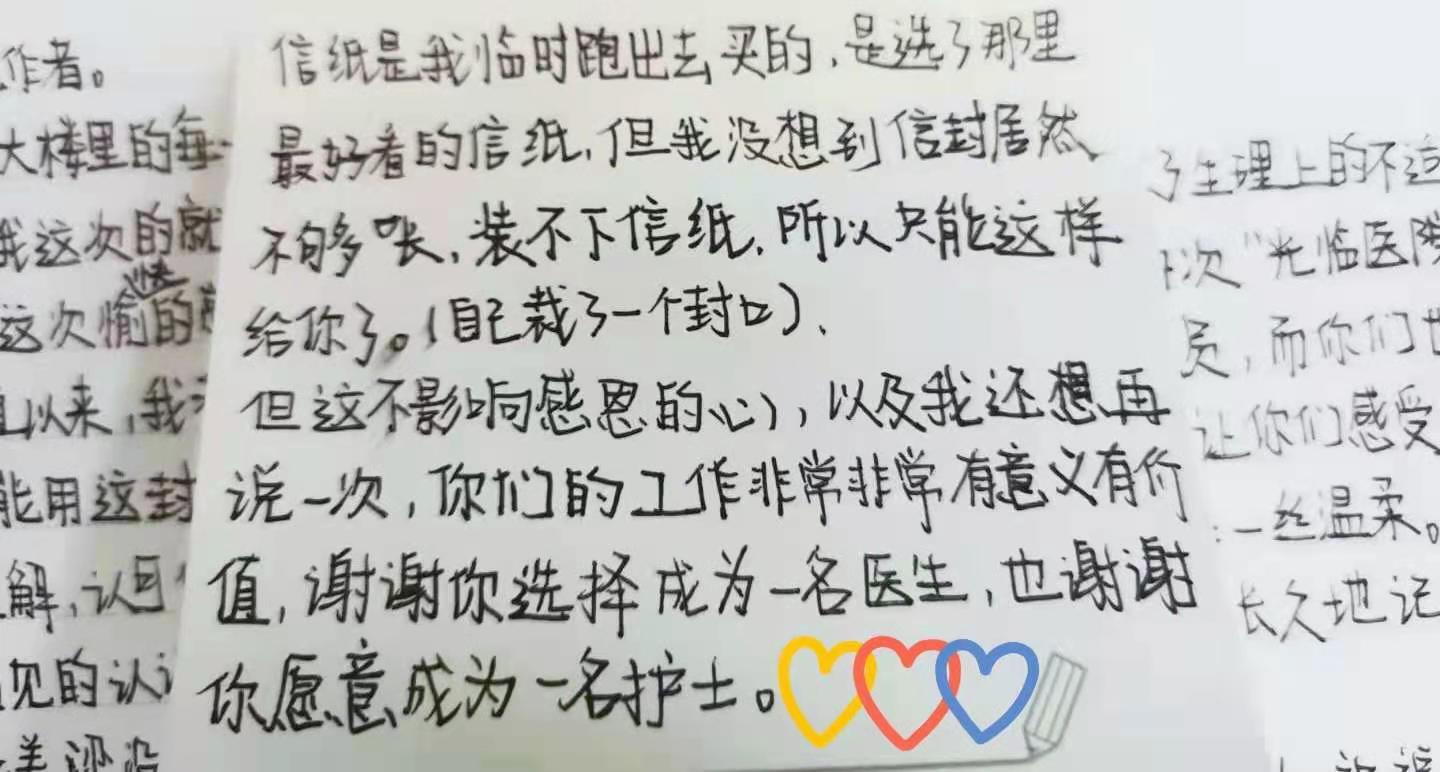 信纸是我临时跑出去买的，是选了那里
最好看的信纸，但我没想到信封居然
不够长，装不下信纸，所以只能这样
给你了。（自己裁了一个封口）．
但这不影响感恩的心），以及我还想再
说一次，你们的工作非常非常有意义有价
值，谢谢你选择成为一名医生，也谢谢
你愿意成为一名护士。
作者。
大楼里的每
我这次的就
这次愉快的
以来，我
能用这封
解，认可
见的认
了生理上的不适
次“光临医院
员，而你们也
让你们感受
一丝温柔。
长久地记